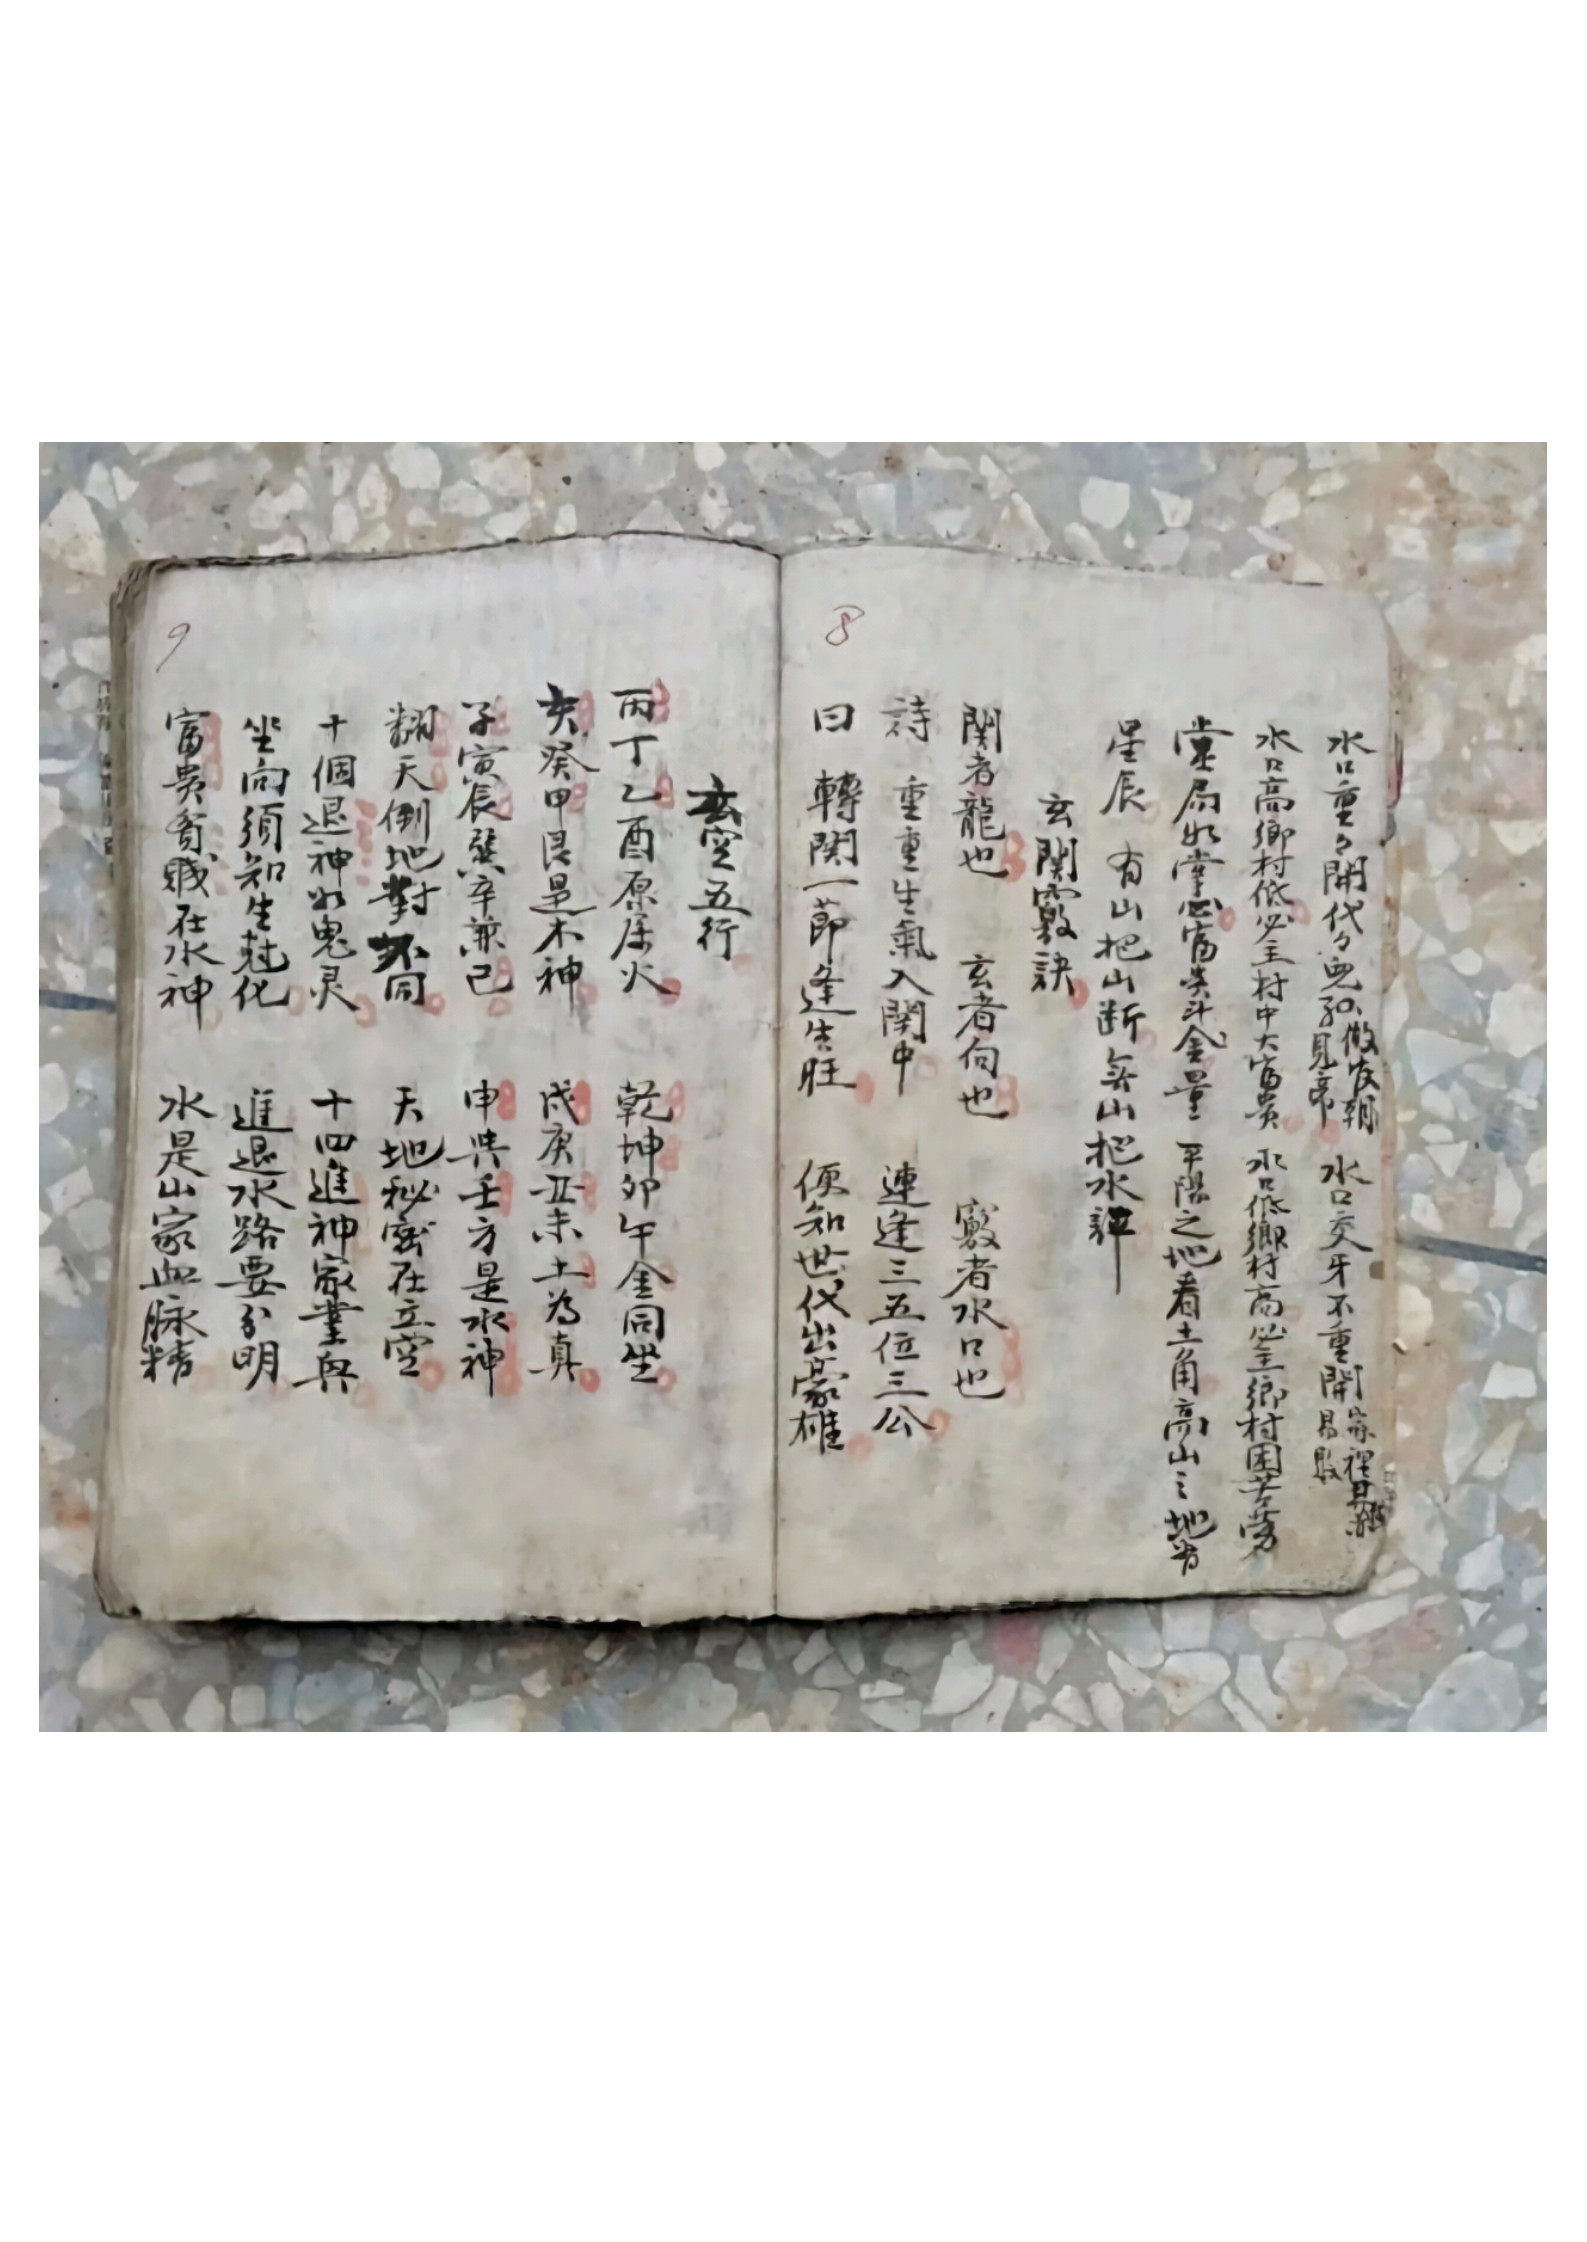 8
水口重々開代々兒孫做官朝見帝 水口交牙不重開家裡易敗
水口高鄉村低必主村中大富貴 水口低鄉村高必主鄉村困苦勞
堂局如掌心富貴斗金量 平陽之地看土角高山之地省
星辰 有山把山断無山把水評
玄関竅訣
関者龍也 玄者向也 竅者水口也
詩 重重生氣入関中 連逢三五位三公
曰 轉関一節逢生旺 便知世代出豪雄
9
玄空五行
丙丁乙酉原属火 乾坤卯午金同坐
亥癸甲艮是木神 戌庚丑未土為真
子寅辰巽辛兼己 申共壬方是水神
翻天倒地對不同 天地秘密在立空
十個退神如鬼灵 十四進神家業興
坐向須知生尅化 進退水路要分明
富貴貧賎在水神 水是山家血脉精